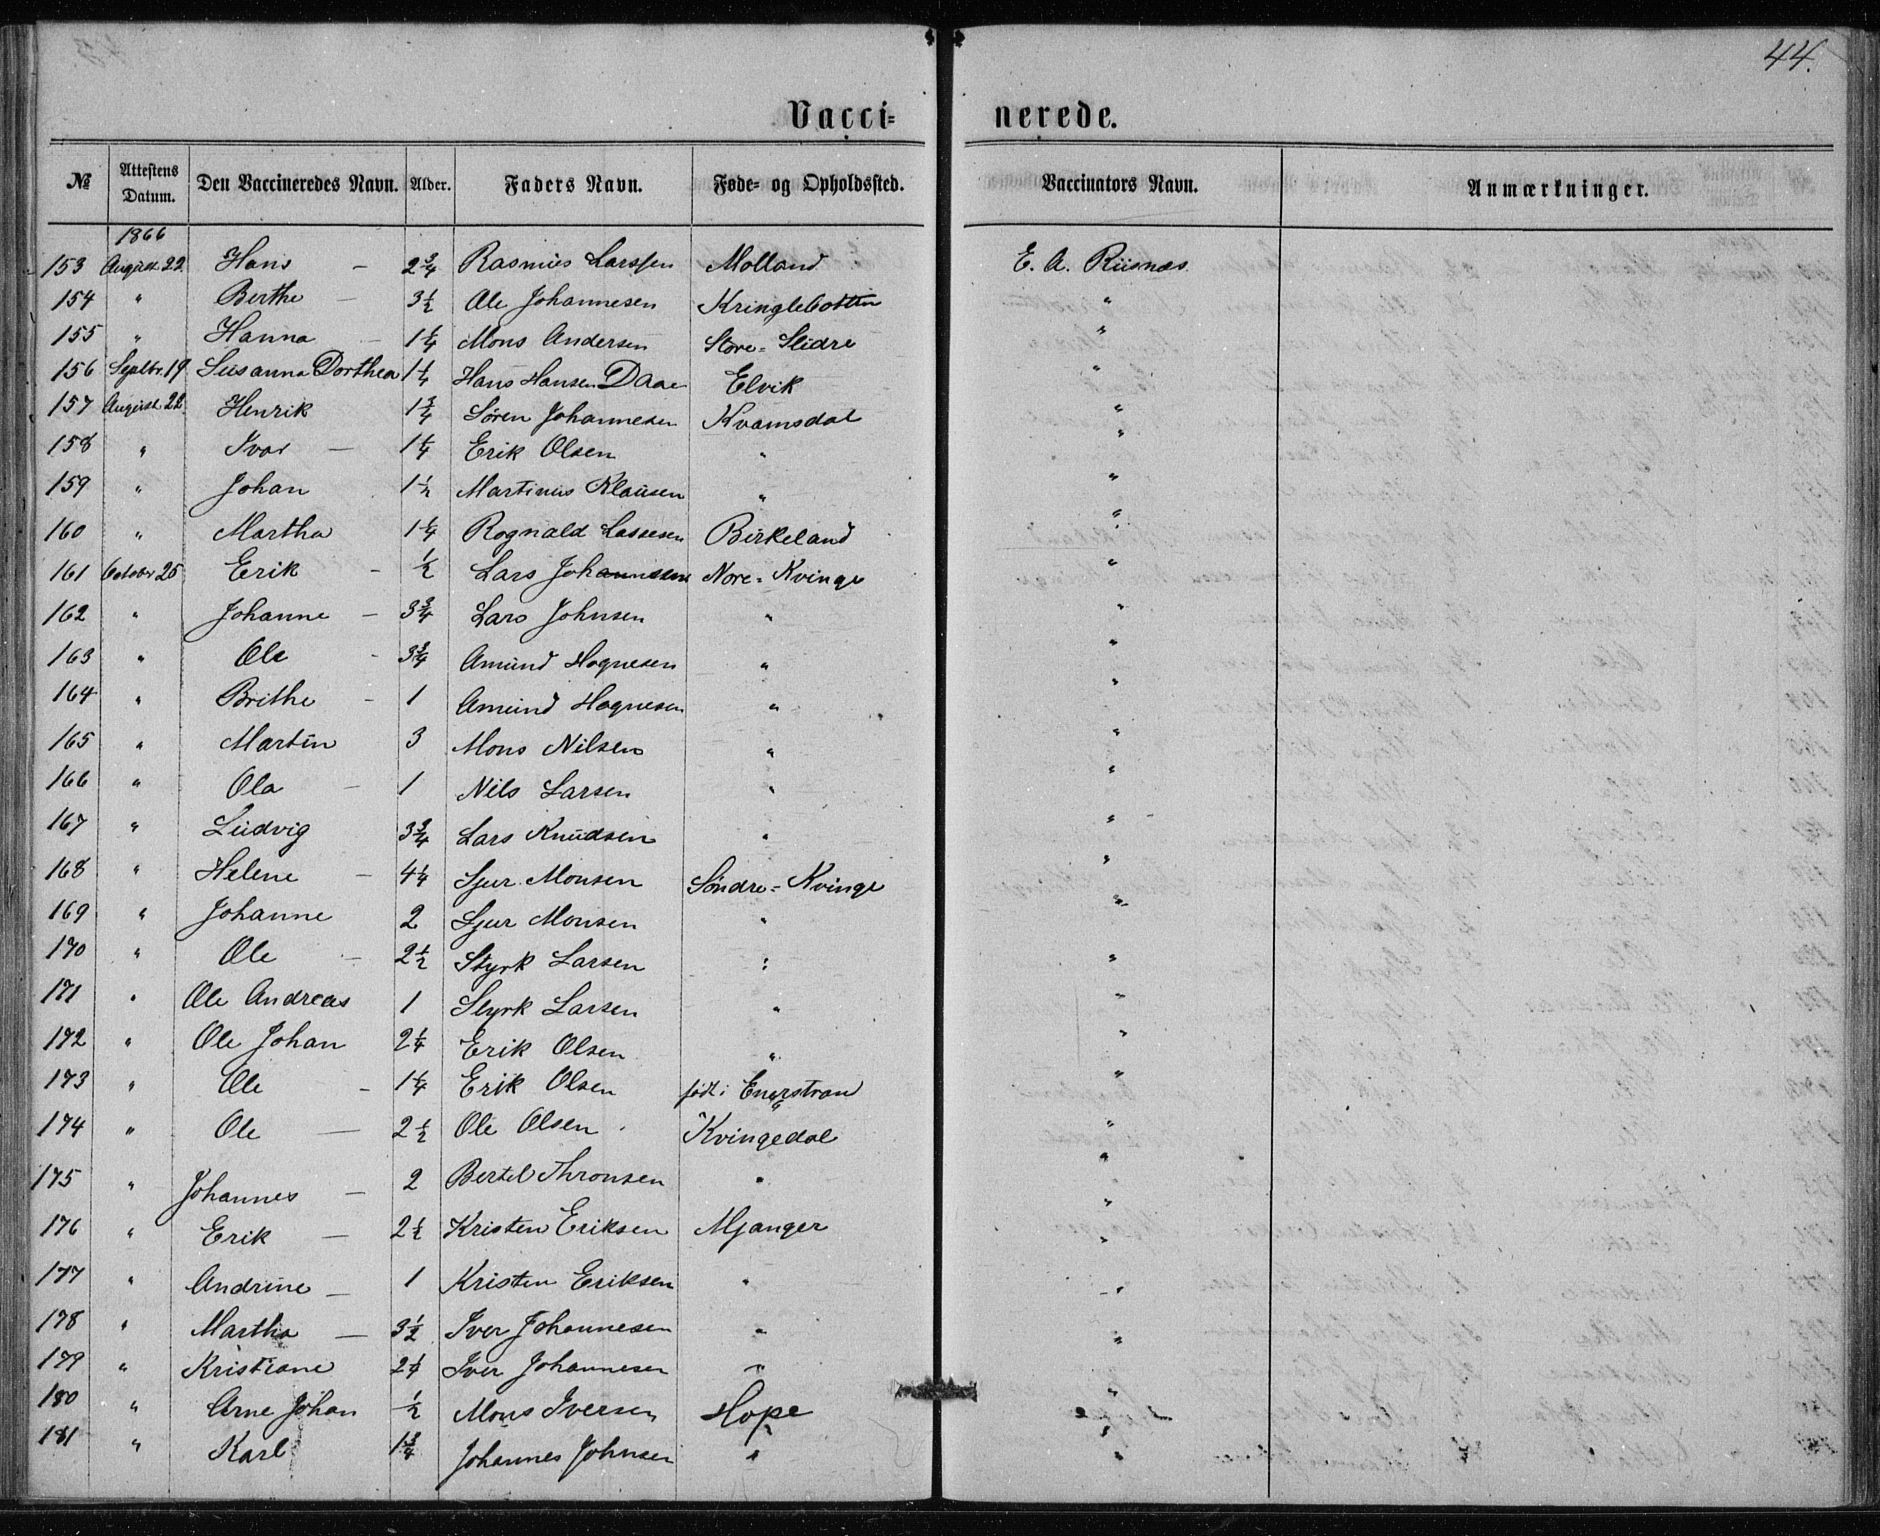 44.
Vacci- nerede.
№ Attestens Datum. Den Vaccineredes Navn. Alder. Faders Navn. Føde- og Opholdssted. Vaccinators Navn. Anmærkninger.
1866
153 August 22 Hans – 2 3/4 Rasmus Larssen Molland E. A. Riisnæs
154 " Berthe – 3 1/2 Ole Johannesen Kringlebotten "
155 " Hanna – 1 1/4 Mons Andersen Store-Slidre "
156 Septbr. 19 Susanna Dorthea 1 1/4 Hans Hansen Daae Elvik "
157 August 22 Henrik 1 3/4 Søren Johannesen Kvamsdal "
158 " Ivar – 1 1/4 Erik Olsen " "
159 " Johan 1 1/2 Martinus Klausen " "
160 " Martha 1 1/4 Rognald Lassesen Birkeland "
161 Octobr 25 Erik – 1/2 Lars Johannesen Nore-Kvinge "
162 " Johanne – 3 3/4 Lars Johnsen " "
163 " Ole - 3 3/4 Amund Hognesen " "
164 " Brithe – 1 Amund Hognesen " "
165 " Martin 3 Mons Nilsen " "
166 " Ola – 1 Nils Larsen " "
167 " Ludvig 3 3/4 Lars Knudsen " "
168 " Helene – 4 1/4 Sjur Monsen Søndre-Kvinge "
169 " Johanne 2 Sjur Monsen " "
170 " Ole – 2 1/2 Styrk Larsen " "
171 " Ole Andreas 1 Styrk Larsen " "
172 " Ole Johan 2 1/4 Erik Olsen " "
173 " Ole – 1 1/4 Erik Olsen født i "
174 " Ole – 2 1/2 Ole Olsen Kvingedal "
175 " Johannes – 2 Bertel Thronsen " "
176 " Erik – 2 1/2 Kristen Eriksen Mjanger "
177 " Andrine – 1 Kristen Eriksen " "
178 " Martha – 3 1/2 Iver Johannesen " "
179 " Kristiane 2 1/4 Iver Johannesen " "
180 " Arne Johan 1/2 Mons Iversen Hope "
181 " Karl 1 3/4 Johannes Johnsen " "